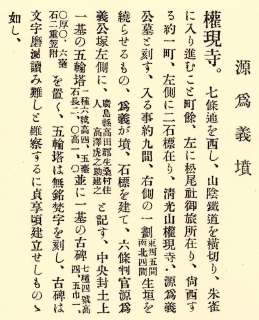 源爲義墳
權現寺。七條通を西し、山陰鐵道を横切り、朱雀
に入り進むこと町餘、左に松尾社御旅所在り、尙西す
る約一町、左側に二石標在り、淸光山權現寺、源爲義
公墓と刻す、入る事約九間、右側の一劃東西四五間南北四間生垣を
繞らせるもの、爲義が墳、石標を建て、六條判官源爲
義公塚左側に、廣島縣高田郡生桑村住人高澤虎之助建之と記す、中央封土上
一基の五輪塔一種六號高四、五毫石長二、〇高一、〇並に一基の古碑七種四號高四、五巾一、
〇厚〇、六毫石二重笠附を置く、五輪塔は無銘梵字を刻し、古碑は
文字磨滅讀み難しと雖察するに貞享頃建立せしものゝ
如し、